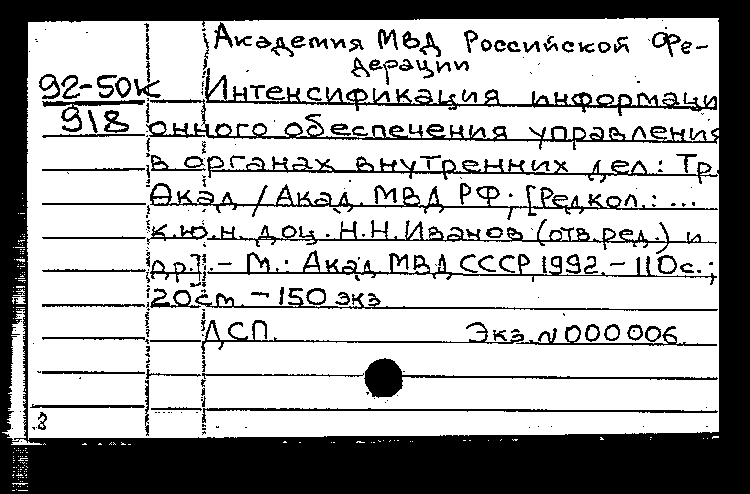 Академия МВД Российской Фе-
дерации
92-50к Интенсификация информаци
918 онного обеспечения управления
в органах внутренних дел: Тр.
Акад / Акад. МВД РФ; [Редкол.: ...
к.ю.н. доц. Н.Н.Иванов (отв.ред.) и
др.]. - М.: Акад МВД СССР, 1992. - 110с.;
20см. - 150 экз
ДСП. Экз.N000006.